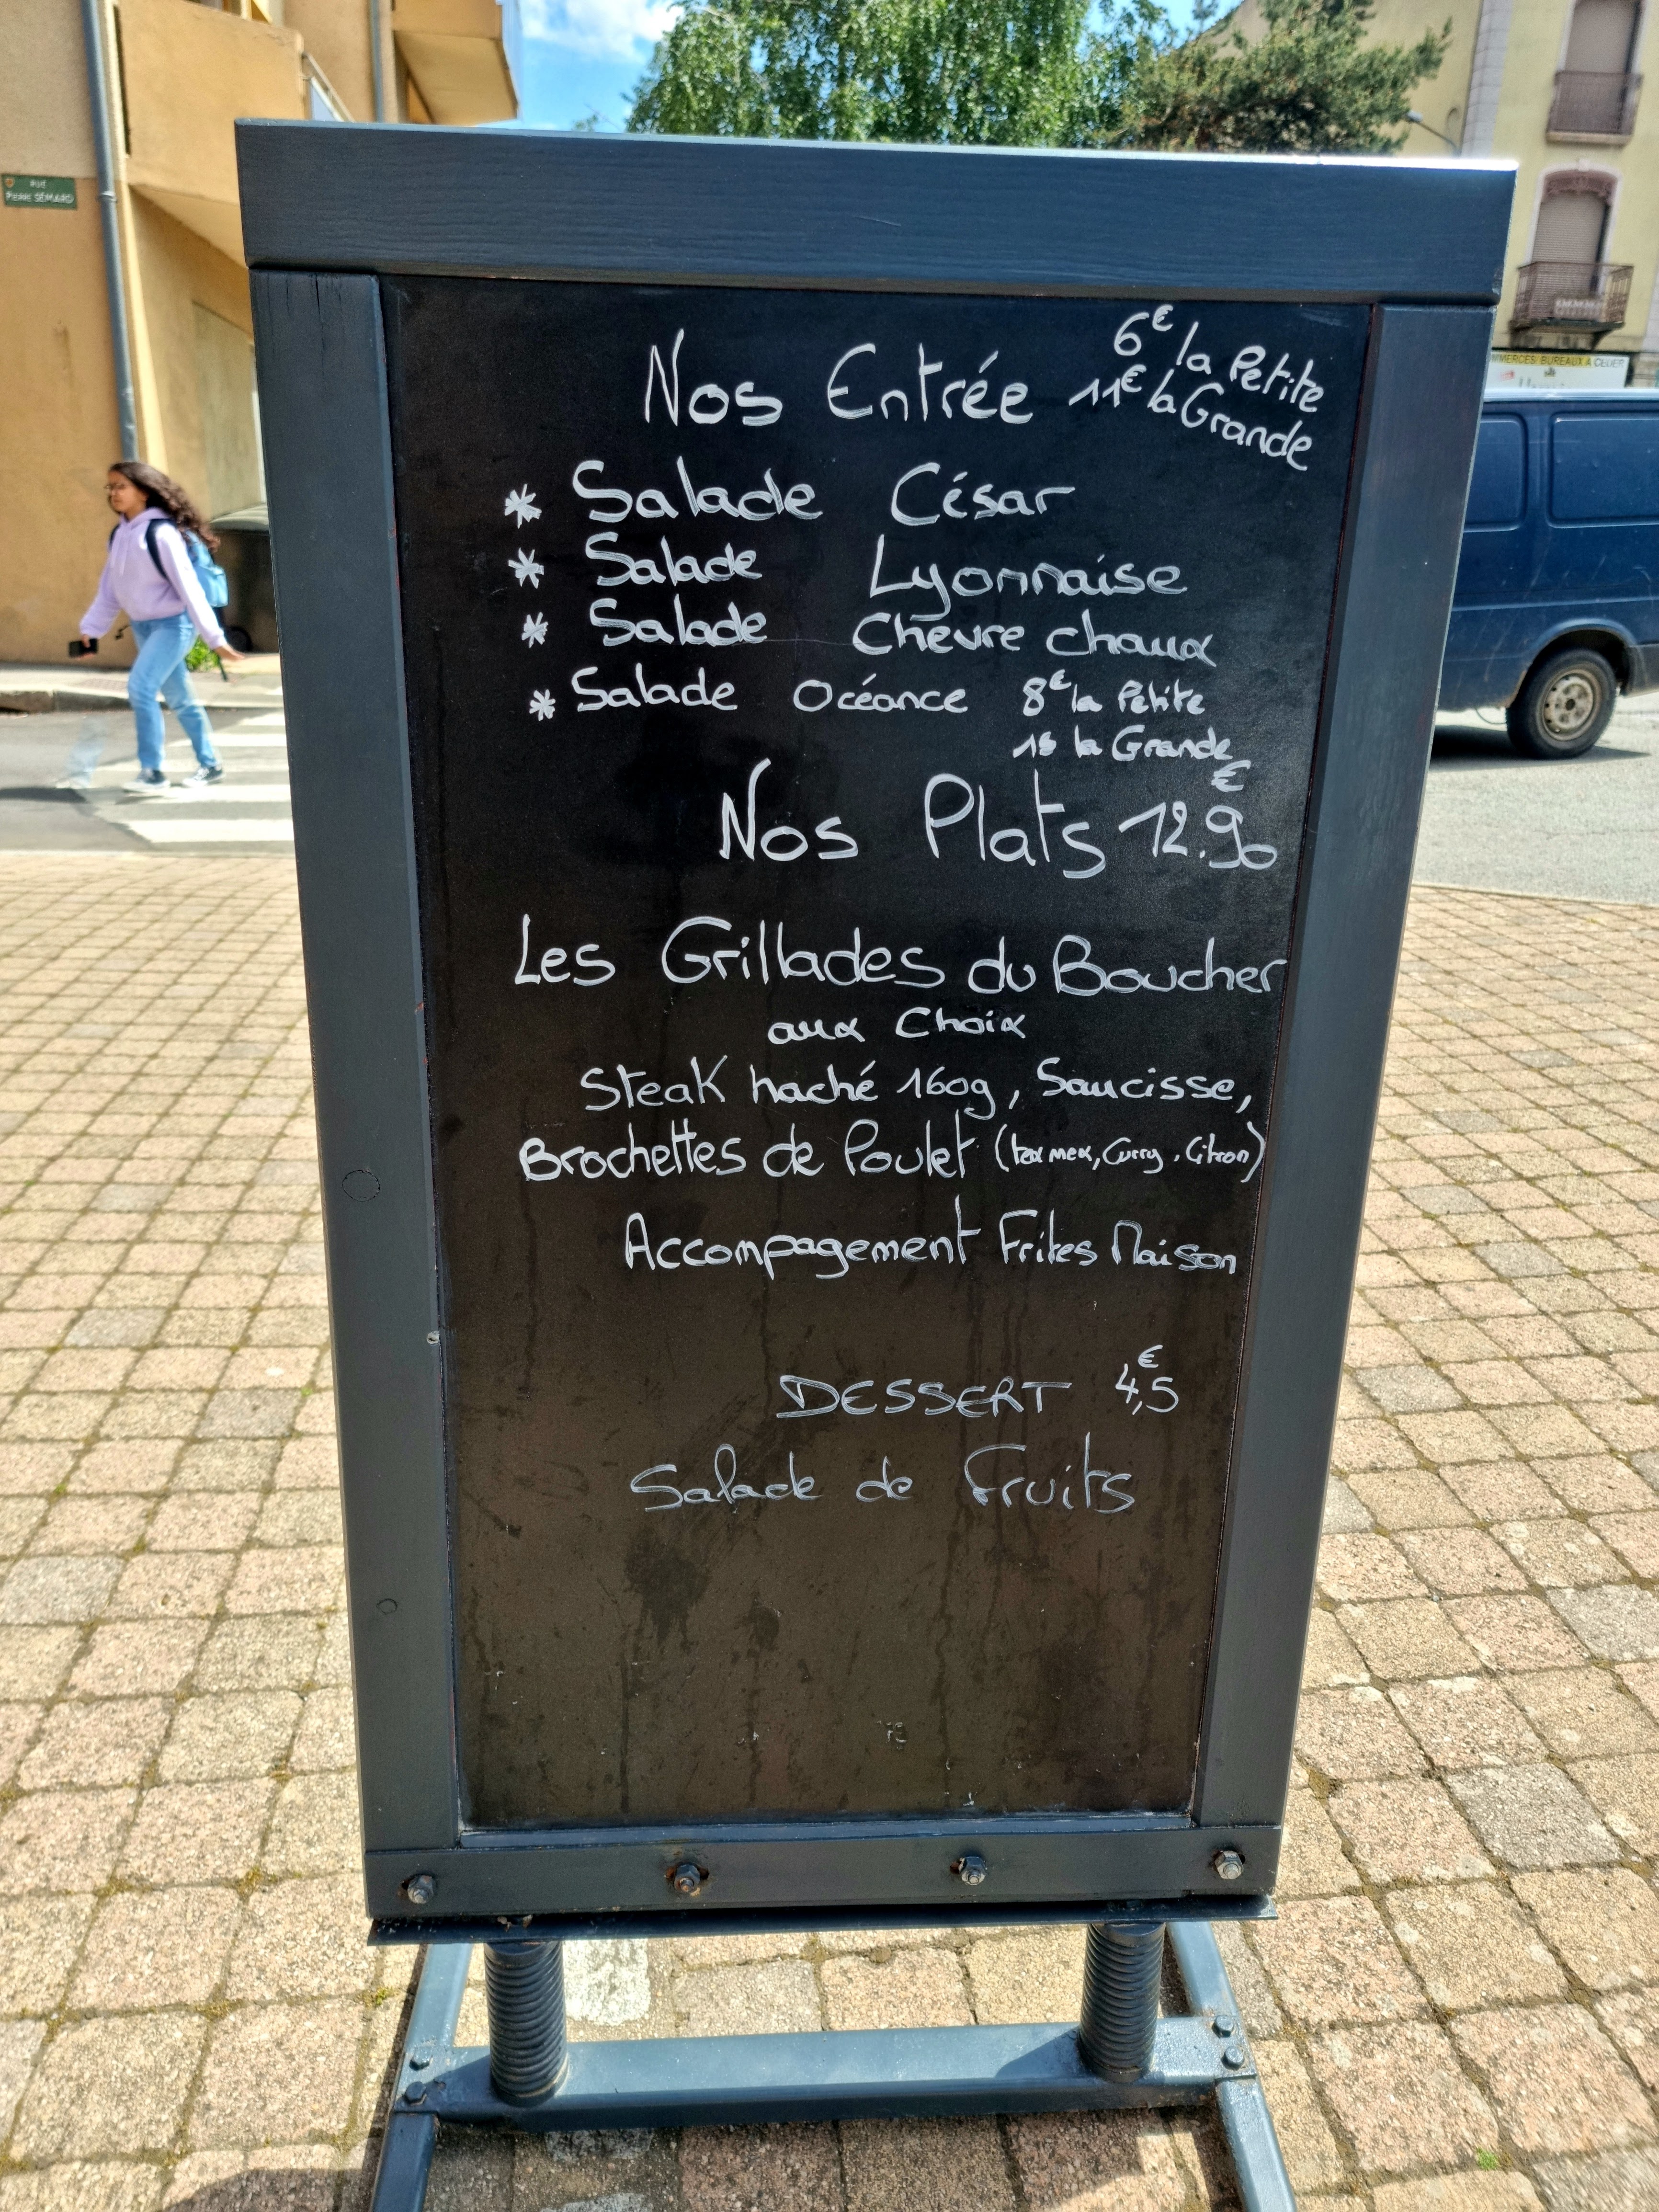 RUE
PIERRE SÉMARD
MMERCES, BUREAUX A CEDER
Nos Entrée
6€ la Petite
11€ la Grande
* Salade César
* Salade Lyonnaise
* Salade Chèvre chaux
* Salade Océance 8€ la Petite
15 la Grande
Nos Plats 12.90€
Les Grillades du Boucher
aux Choix
Steak haché 160g, Saucisse,
Brochettes de Poulet (tex mex, Curry, Citron)
Accompagement Frites Maison
DESSERT 4,5€
Salade de Fruits